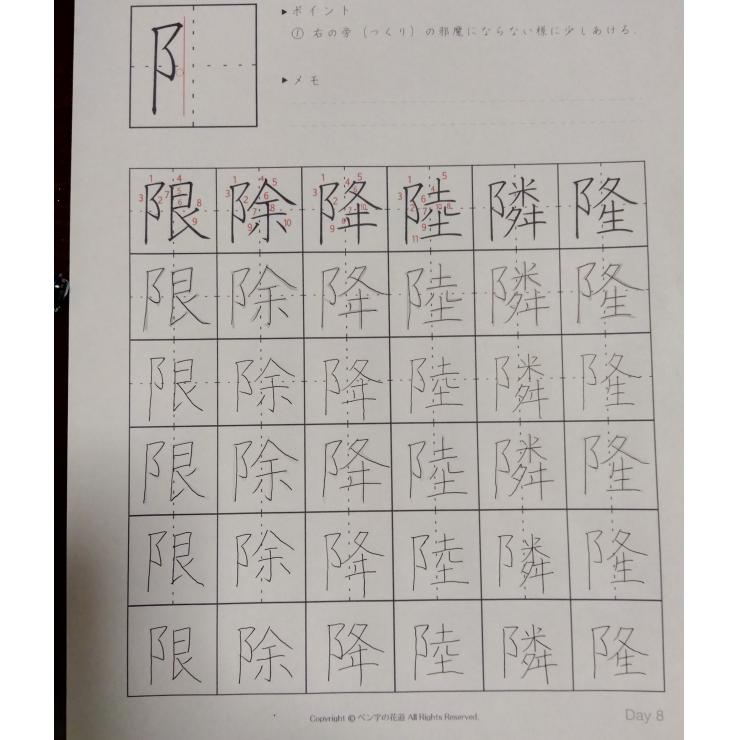 阝
▶ポイント
① 右の旁（つくり）の邪魔にならない様に少しあける.
▶メモ
限 除 降 陸 隣 隆
限 除 降 陸 隣 隆
限 除 降 陸 隣 隆
限 除 降 陸 隣 隆
限 除 降 陸 隣 隆
限 除 降 陸 隣 隆
Copyright © ペン字の花道 All Rights Reserved.
Day 8